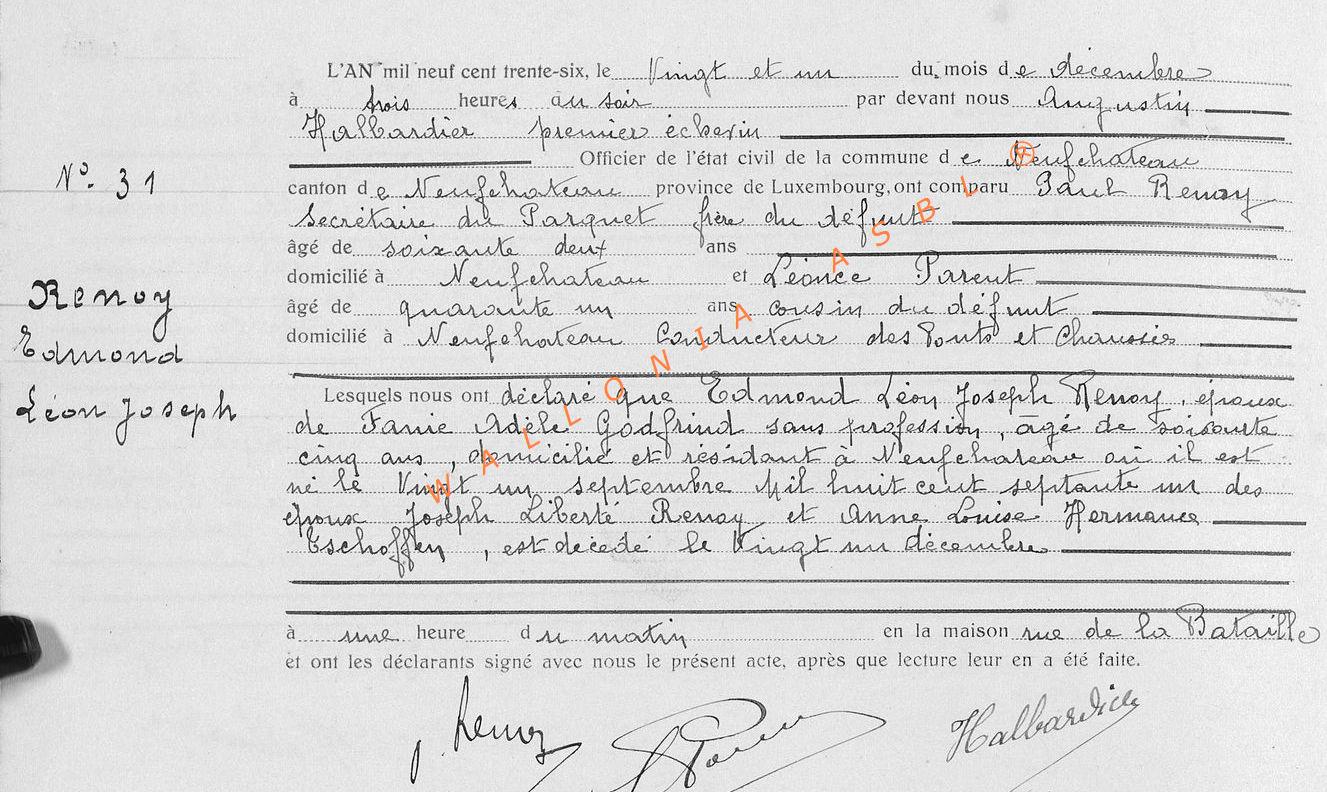 L'AN mil neuf cent trente-six, le Vingt et un du mois de décembre
à trois heures du soir par devant nous Augustin
Halbardier premier échevin
Officier de l'état civil de la commune de Neufchateau
N° 31
canton de Neufchateau province de Luxembourg, ont comparu Paul Renoy
secrétaire du Parquet frère du défunt
âgé de soixante deux ans
domicilié à Neufchateau et Léonce Parent
Renoy
âgé de quarante un ans cousin du défunt
domicilié à Neufchateau Conducteur des Ponts et Chaussées
Edmond
Lesquels nous ont déclaré que Edmond Léon Joseph Renoy, époux
Léon Joseph
de Fanie Adèle Godfrind sans profession, âgé de soixante
cinq ans, domicilié et résidant à Neufchateau où il est
né le Vingt un septembre Mil huit cent septante un des
époux Joseph Liberté Renoy et Anne Louise Hermance
Eschoffen, est décédé le Vingt un décembre
à une heure du matin en la maison rue de la Bataille
et ont les déclarants signé avec nous le présent acte, après que lecture leur en a été faite.
Renoy
Parent
Halbardier
WALLONIA ASBL ®